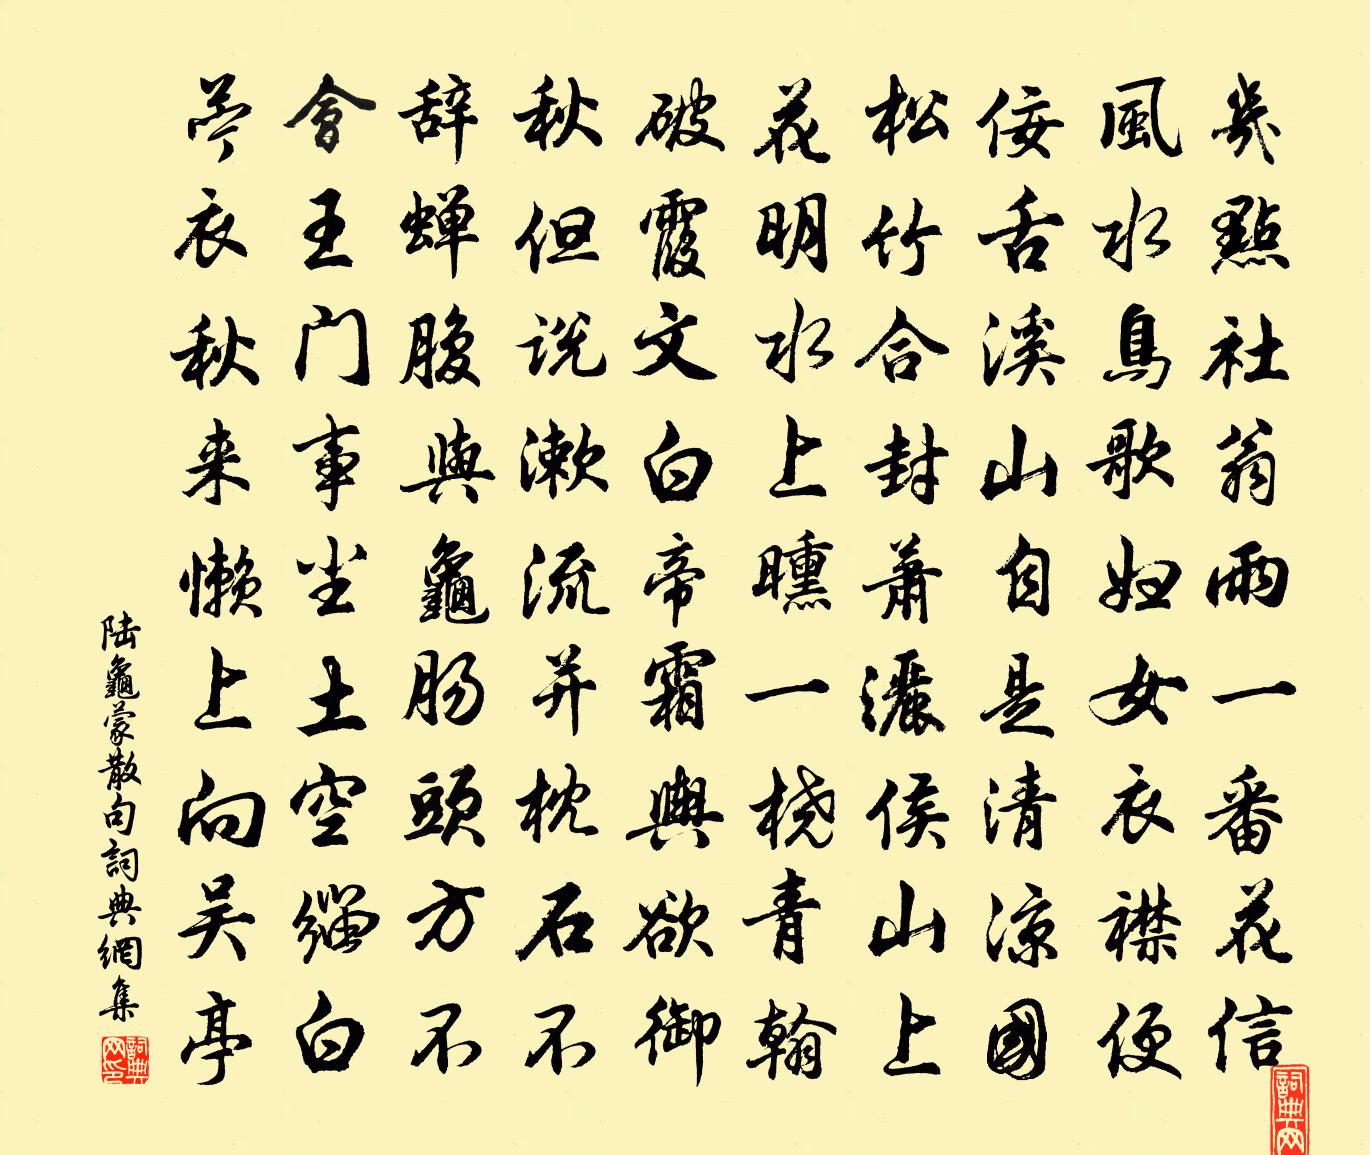 幾點社翁雨一番花信
風水鳥歌妲女衣襟便
佞舌溪山自是清涼國
松竹合封蕭灑侯山上
花明水上曛一桡青翰
破霞文白帝霜輿欲御
秋但说漱流并枕石不
辞蝉腹與龜肠頭方不
會王门事尘土空缁白
苎衣秋来懒上向吴亭
陆龜蒙散句詞典網集
詞典网